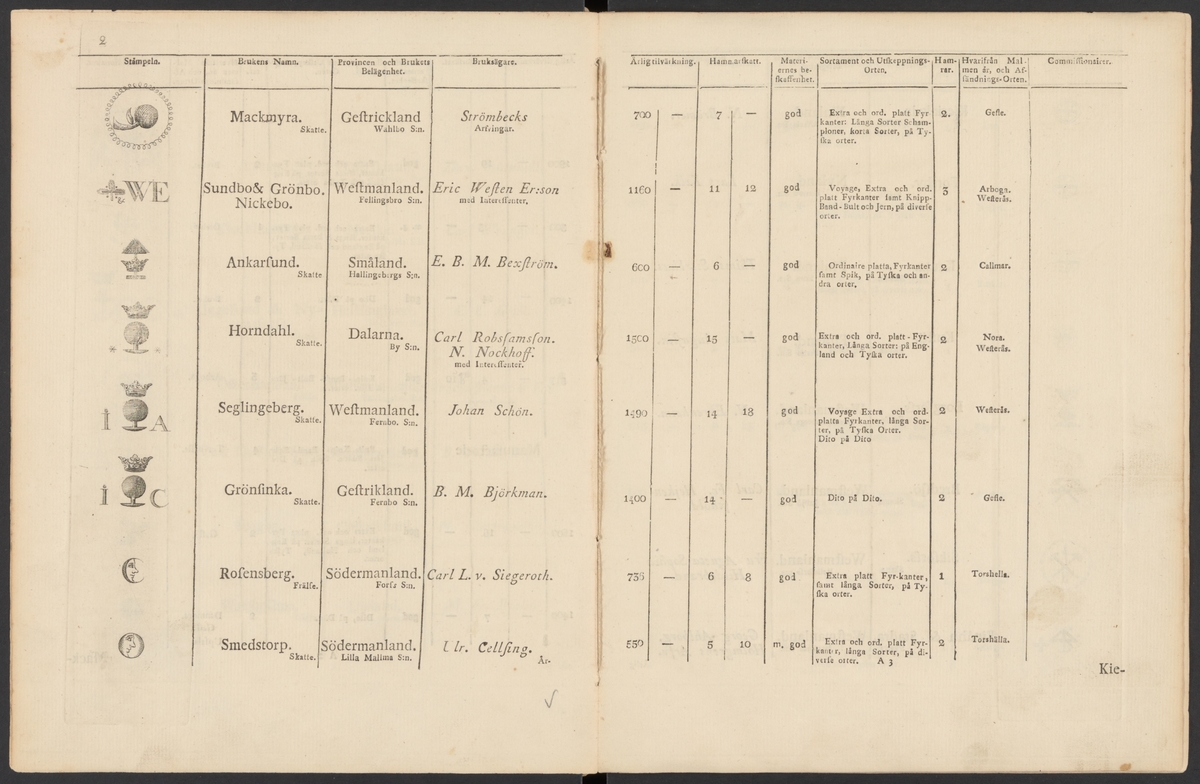 2
Stämpeln. Brukens Namn. Provincen och Brukets Belägenhet. Bruksägare. Årlig tilvärkning. Hamnarſkatt. Materiernes beſkaffenhet. Sortament och Utſkeppnings-Orten. Hamrar. Hvarifrån Malmen är, och Afſändnings-Orten. Commiſſionairer.
Mackmyra. Geſtrickland Strömbecks 700 — 7 — god Extra och ord. platt Fyr 2. Gefle.
Skatte. Wahlbo S:n. Arfvingar. kanter: Långa Sorter Scham-
pioner, korta Sorter, på Ty-
ſka orter.
WE Sundbo& Grönbo. Weſtmanland. Eric Weſten Er:son 1160 — 11 12 god Voyage, Extra och ord. 3 Arboga.
Nickebo. Fellingsbro S:n. med Intereſſenter. platt Fyrkanter ſamt Knipp- Weſterås.
Band-Bult och Jern, på diverſe
orter.
Ankarſund. Småland. E. B. M. Bexſtröm. 600 — 6 — god Ordinaire platta, Fyrkanter 2 Callmar.
Skatte Hallingebergs S:n. ſamt Spik, på Tyſka och an-
dra orter.
Horndahl. Dalarna. Carl Robsſamsſon. 1500 — 15 — god Extra och ord. platt-Fyr- 2 Nora.
Skatte. By S:n. N. Nockhoff. kanter, Långa Sorter: på Eng- Weſterås.
med Intereſſenter. land och Tyſka orter.
I A Seglingeberg. Weſtmanland. Johan Schön. 1490 — 14 18 god Voyage Extra och ord. 2 Weſterås.
Skatte. Fernbo. S:n. platta Fyrkanter, långa Sor-
ter, på Tyſka Orter.
Dito på Dito
I C Grönſinka. Geſtrikland. B. M. Björkman. 1400 — 14 — god Dito på Dito. 2 Gefle.
Skatte. Fernbo S:n.
Roſensberg. Södermanland. Carl L. v. Siegeroth. — 6 8 god Extra platt Fyr-kanter, 1 Torshella.
Frälſe. Forſz S:n. ſamt långa Sorter, på Ty-
ſka orter.
Smedstorp. Södermanland. Ulr. Cellſing. 550 — 5 10 m. god Extra och ord. platt Fyr- 2 Torshälla.
Skatte. Lilla Mallma S:n. kanter, långa Sorter, på di-
verſe orter. A 3
Är-
Kie-